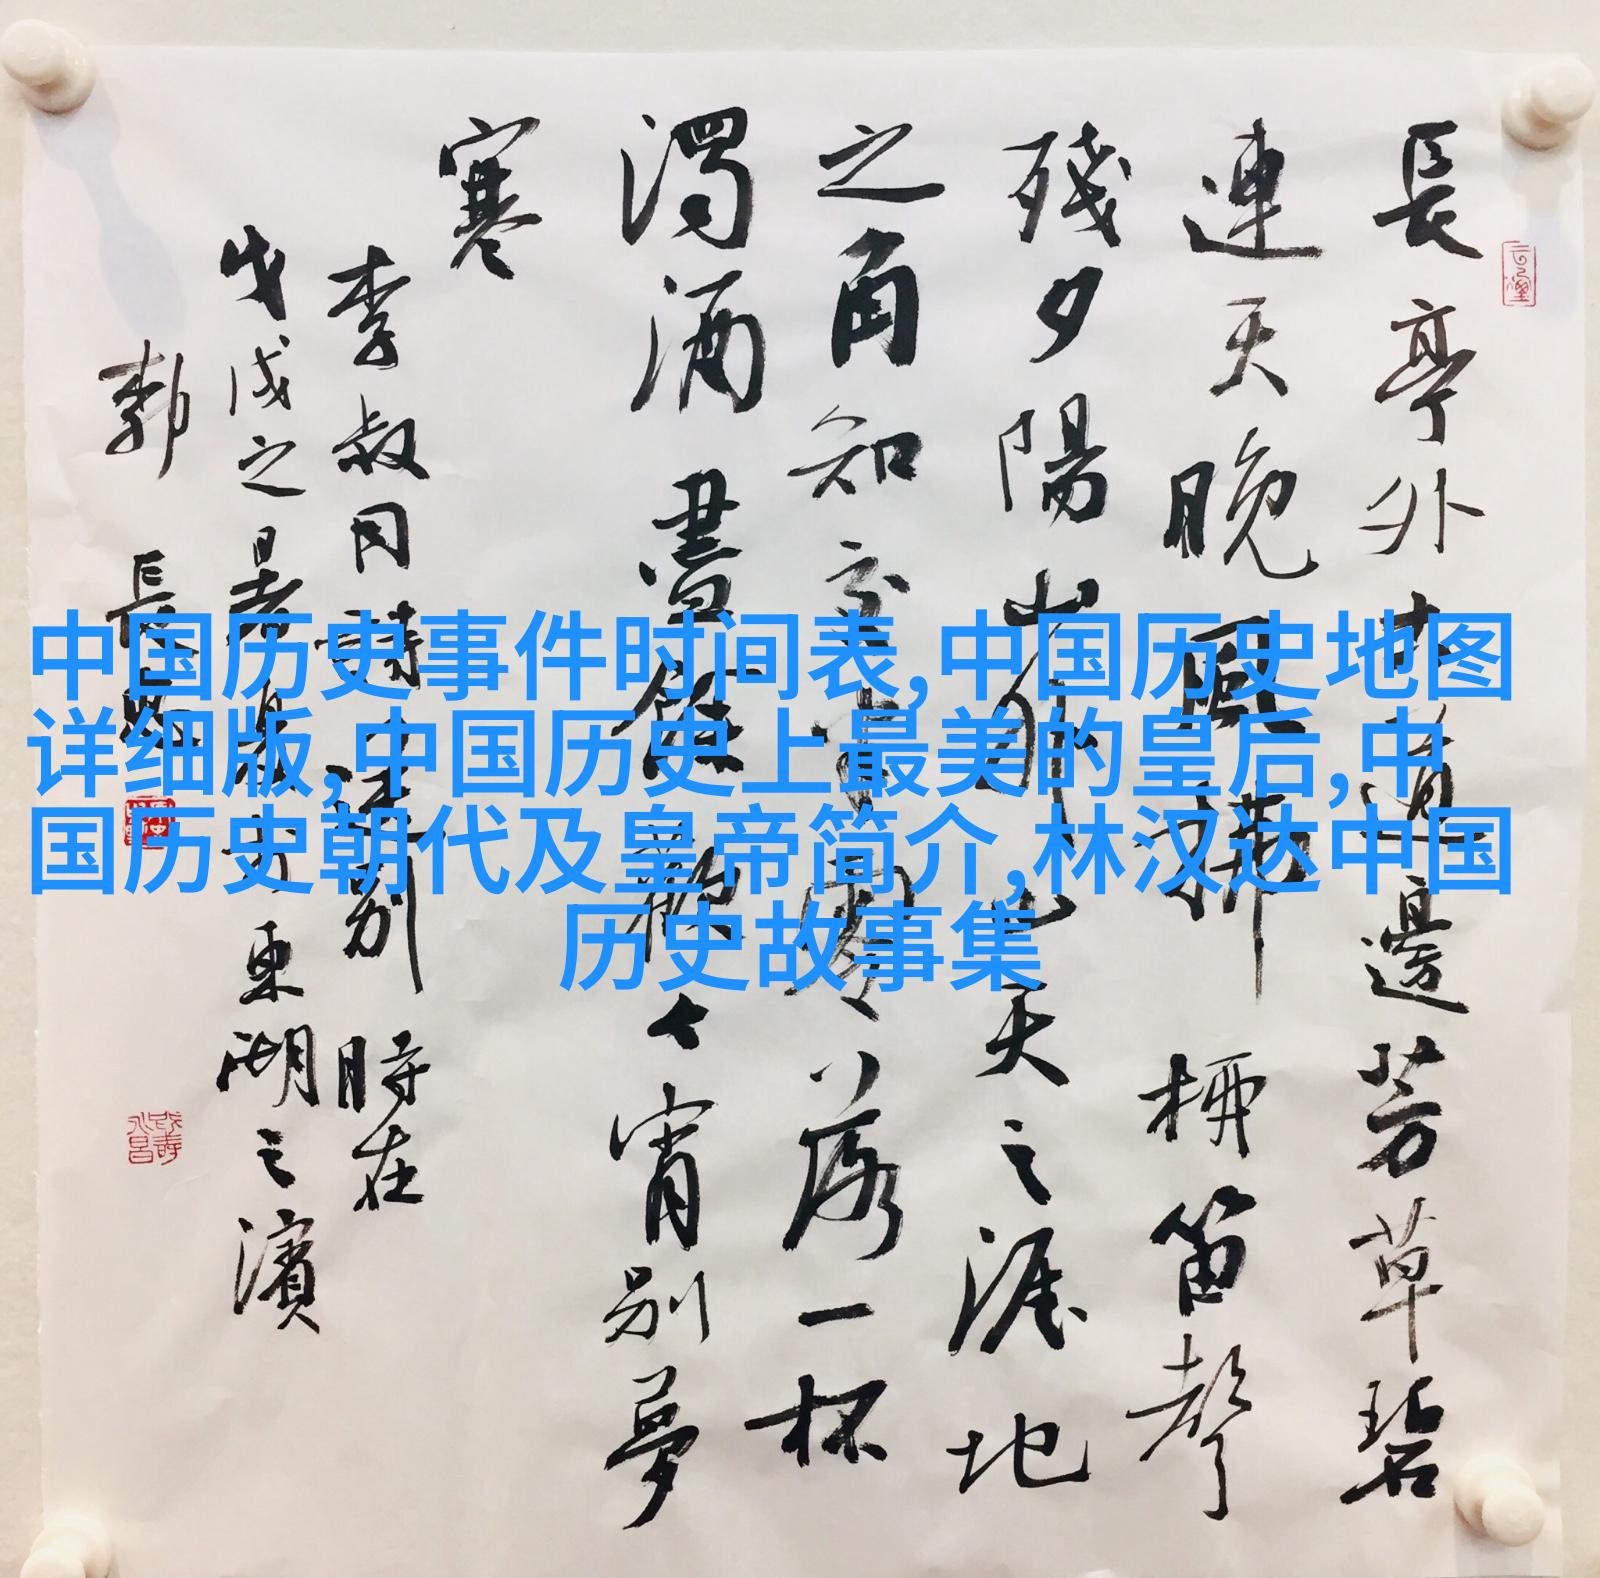 長亭外古道邊芳草碧
連天晚風拂柳笛聲
殘夕陽山外山天之涯地
之角知交半零落一杯
濁酒盡餘歡今宵別夢
寒
李叔同詩送別時在
戊戌之暑東湖之濱
郭長
中国历史事件时间表,中国历史地图
详细版,中国历史上最美的皇后,中
国历史朝代及皇帝简介,林汉达中国
历史故事集